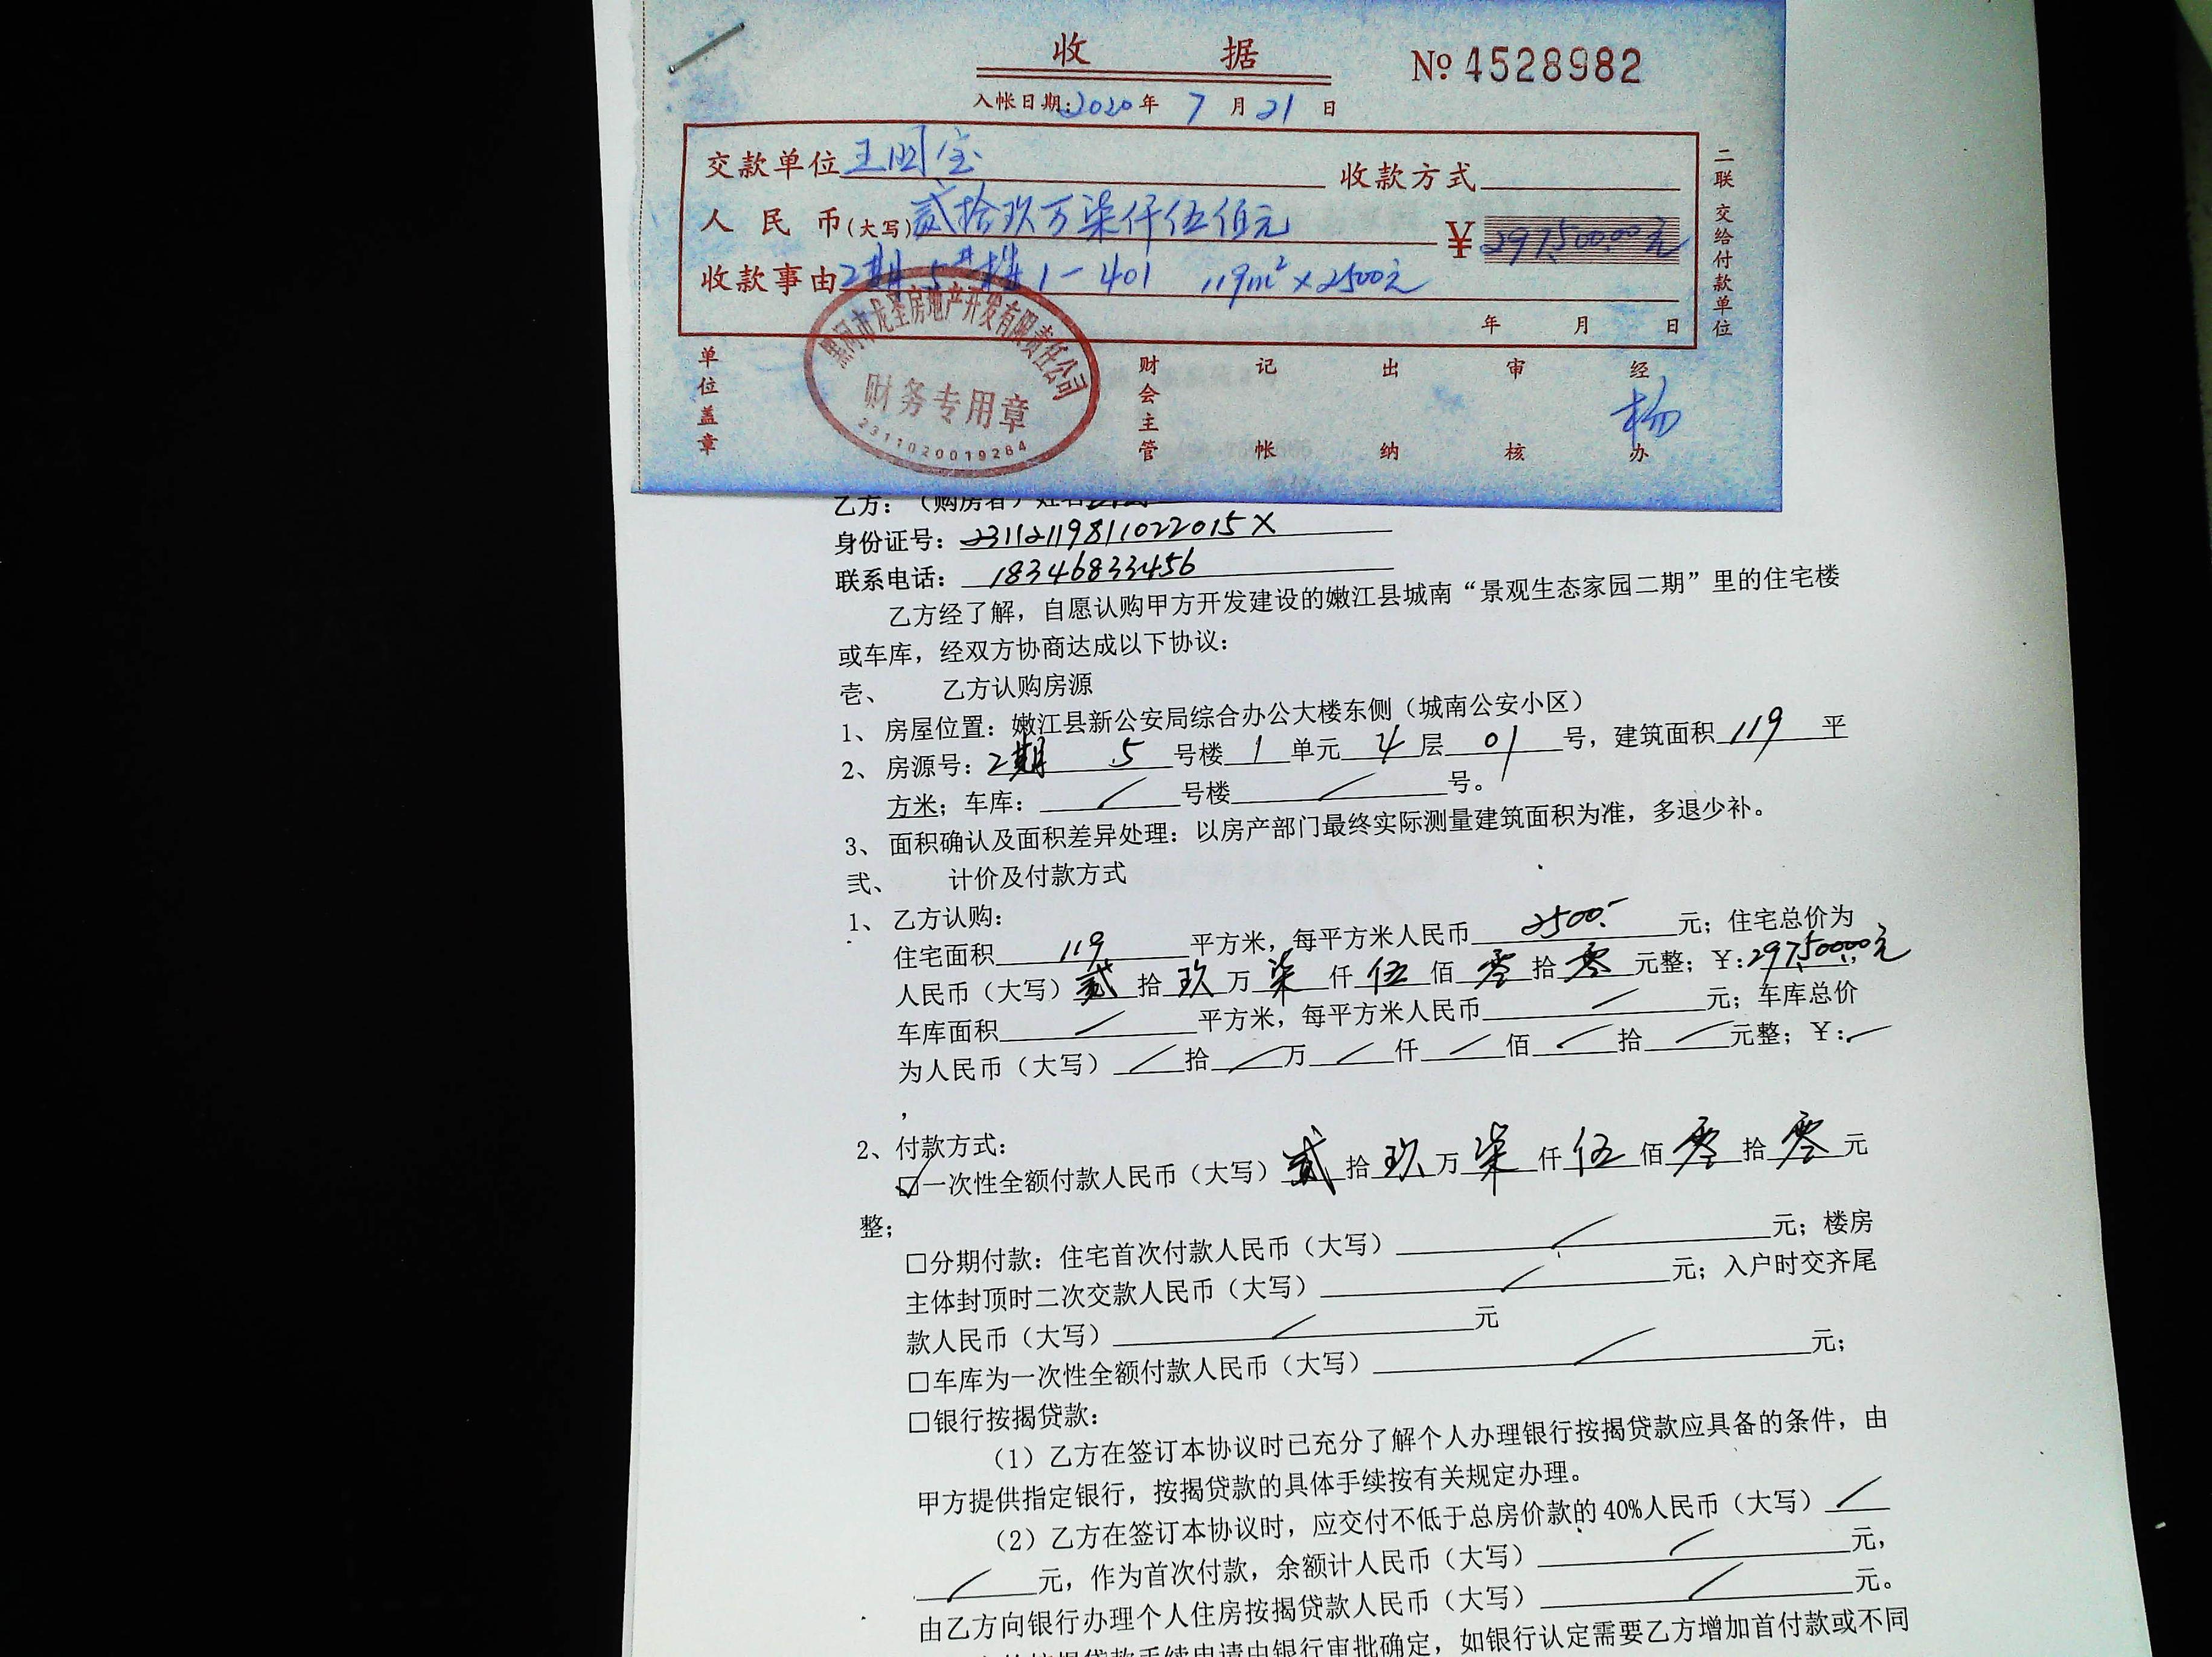 收 据
№ 4528982
入帐日期:2020年 7 月 21 日
交款单位 王国宝 收款方式
人民币(大写) 贰拾玖万柒仟伍佰元 ¥ 297,500.00元
收款事由 2期 5#楼 1-401 119m²×2500元
年 月 日
二联 交给付款单位
单位盖章
黑河市龙圣房地产开发有限责任公司
财务专用章
2311020019284
财会主管 记帐 出纳 审核 经办
杨
乙方:(购房者)姓名
身份证号:23112119811022015X
联系电话:18346833456
乙方经了解,自愿认购甲方开发建设的嫩江县城南“景观生态家园二期”里的住宅楼
或车库,经双方协商达成以下协议:
壱、 乙方认购房源
1、房屋位置:嫩江县新公安局综合办公大楼东侧(城南公安小区)
2、房源号:2期 5 号楼 1 单元 4 层 01 号,建筑面积 119 平
方米;车库: / 号楼 / 号。
3、面积确认及面积差异处理:以房产部门最终实际测量建筑面积为准,多退少补。
弐、 计价及付款方式
1、乙方认购:
住宅面积 119 平方米,每平方米人民币 2500.- 元;住宅总价为
人民币(大写) 贰 拾 玖 万 柒 仟 伍 佰 零 拾 零 元整;¥:297,500.00元,
车库面积 / 平方米,每平方米人民币 / 元;车库总价
为人民币(大写) / 拾 / 万 / 仟 / 佰 / 拾 / 元整;¥:/
,
2、付款方式:
☑一次性全额付款人民币(大写) 贰 拾 玖 万 柒 仟 伍 佰 零 拾 零 元
整;
□分期付款:住宅首次付款人民币(大写) / 元;楼房
主体封顶时二次交款人民币(大写) / 元;入户时交齐尾
款人民币(大写) / 元
□车库为一次性全额付款人民币(大写) / 元;
□银行按揭贷款:
(1)乙方在签订本协议时已充分了解个人办理银行按揭贷款应具备的条件,由
甲方提供指定银行,按揭贷款的具体手续按有关规定办理。
(2)乙方在签订本协议时,应交付不低于总房价款的40%人民币(大写) /
/ 元,作为首次付款,余额计人民币(大写) / 元,
由乙方向银行办理个人住房按揭贷款人民币(大写) / 元。
按揭贷款手续申请由银行审批确定,如银行认定需要乙方增加首付款或不同